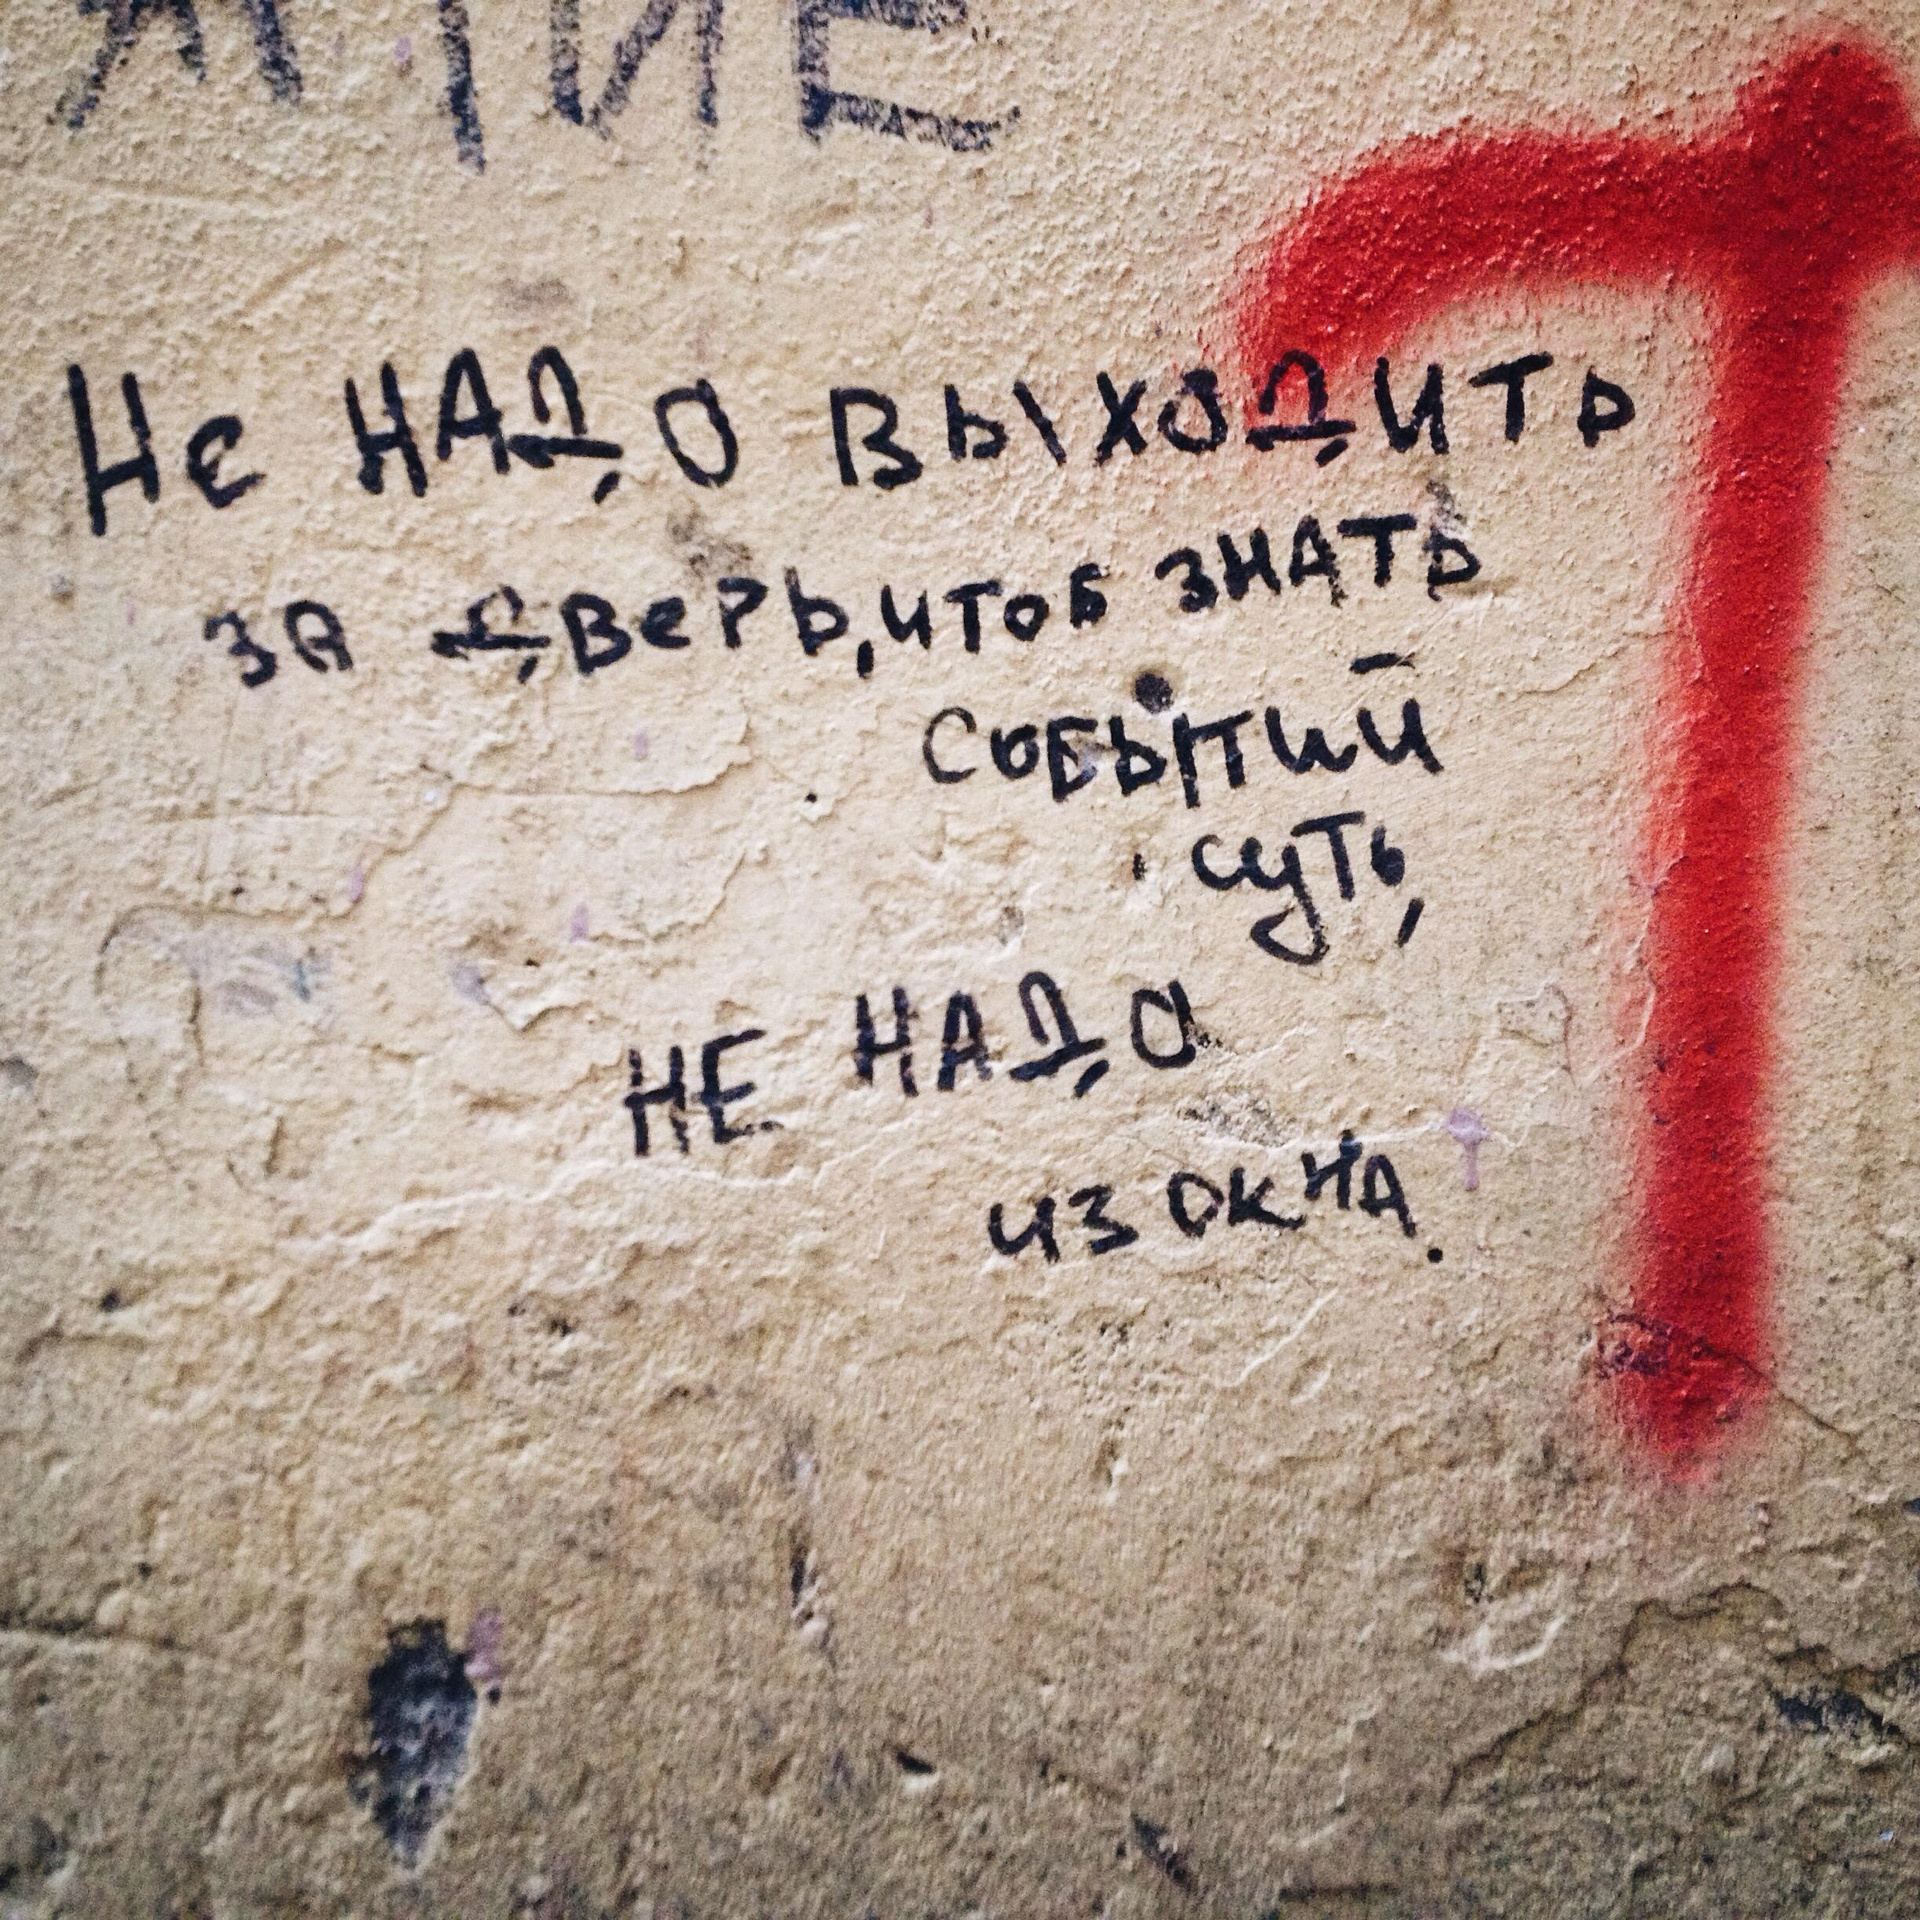 Не НАДО ВЫХОДИТЬ
ЗА ДВеРЬ, ЧТОБ ЗНАТЬ
СОБЫТИЙ
СУТЬ,
НЕ НАДО
ИЗ ОКНА.